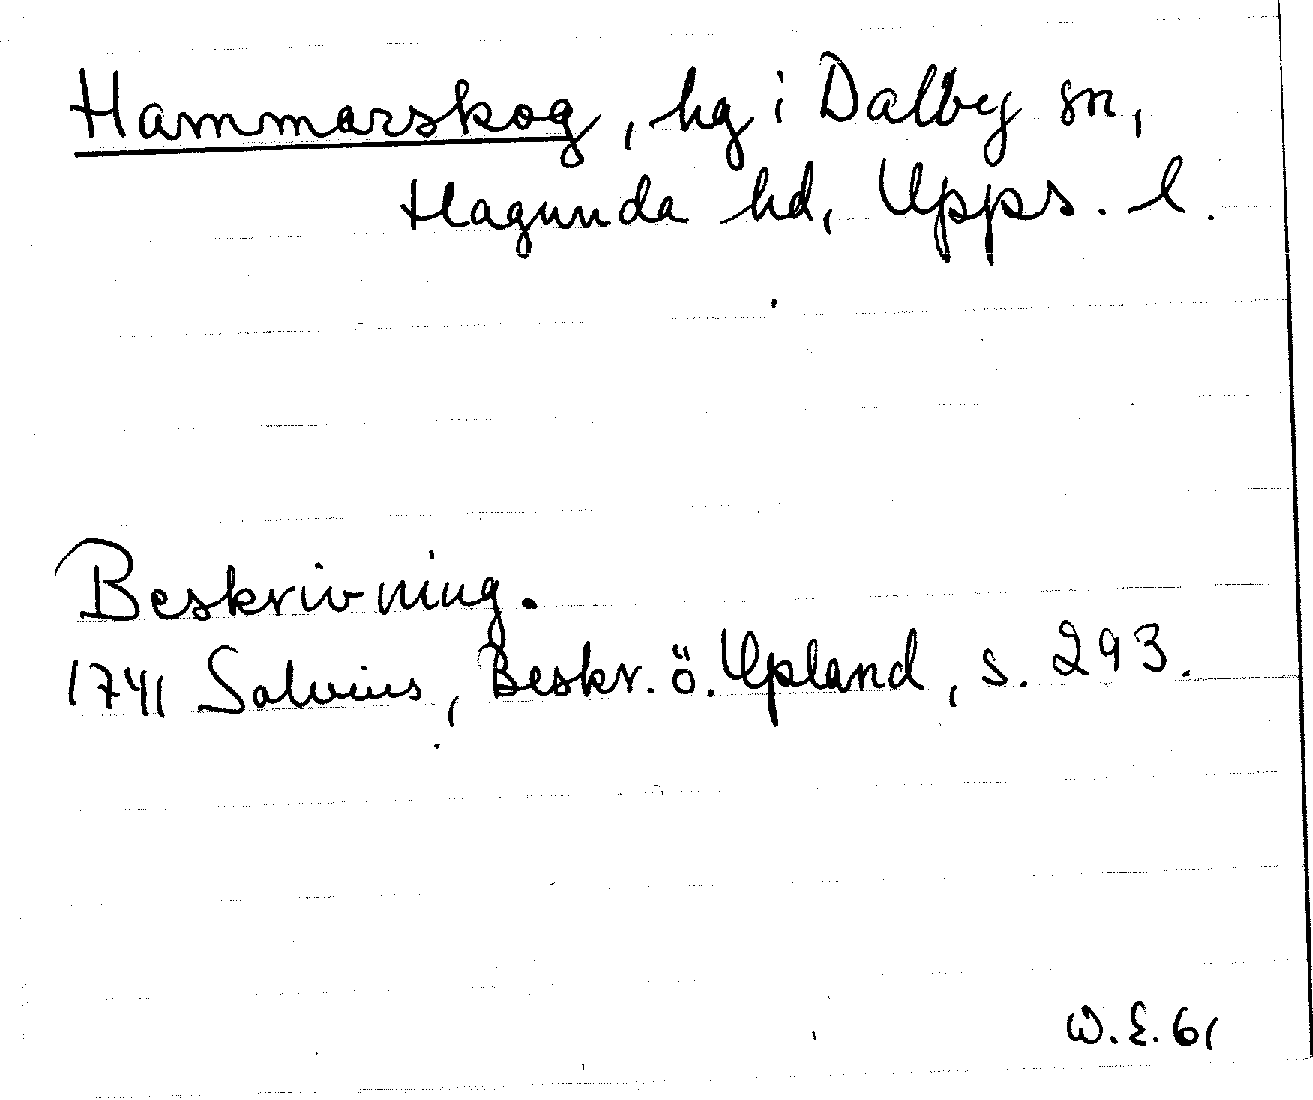 Hammarskog, hg i Dalby sn,
Hagunda hd, Upps. l.
Beskrivning.
1741 Salvius, Beskr. ö. Upland, s. 293.
W. E. 61